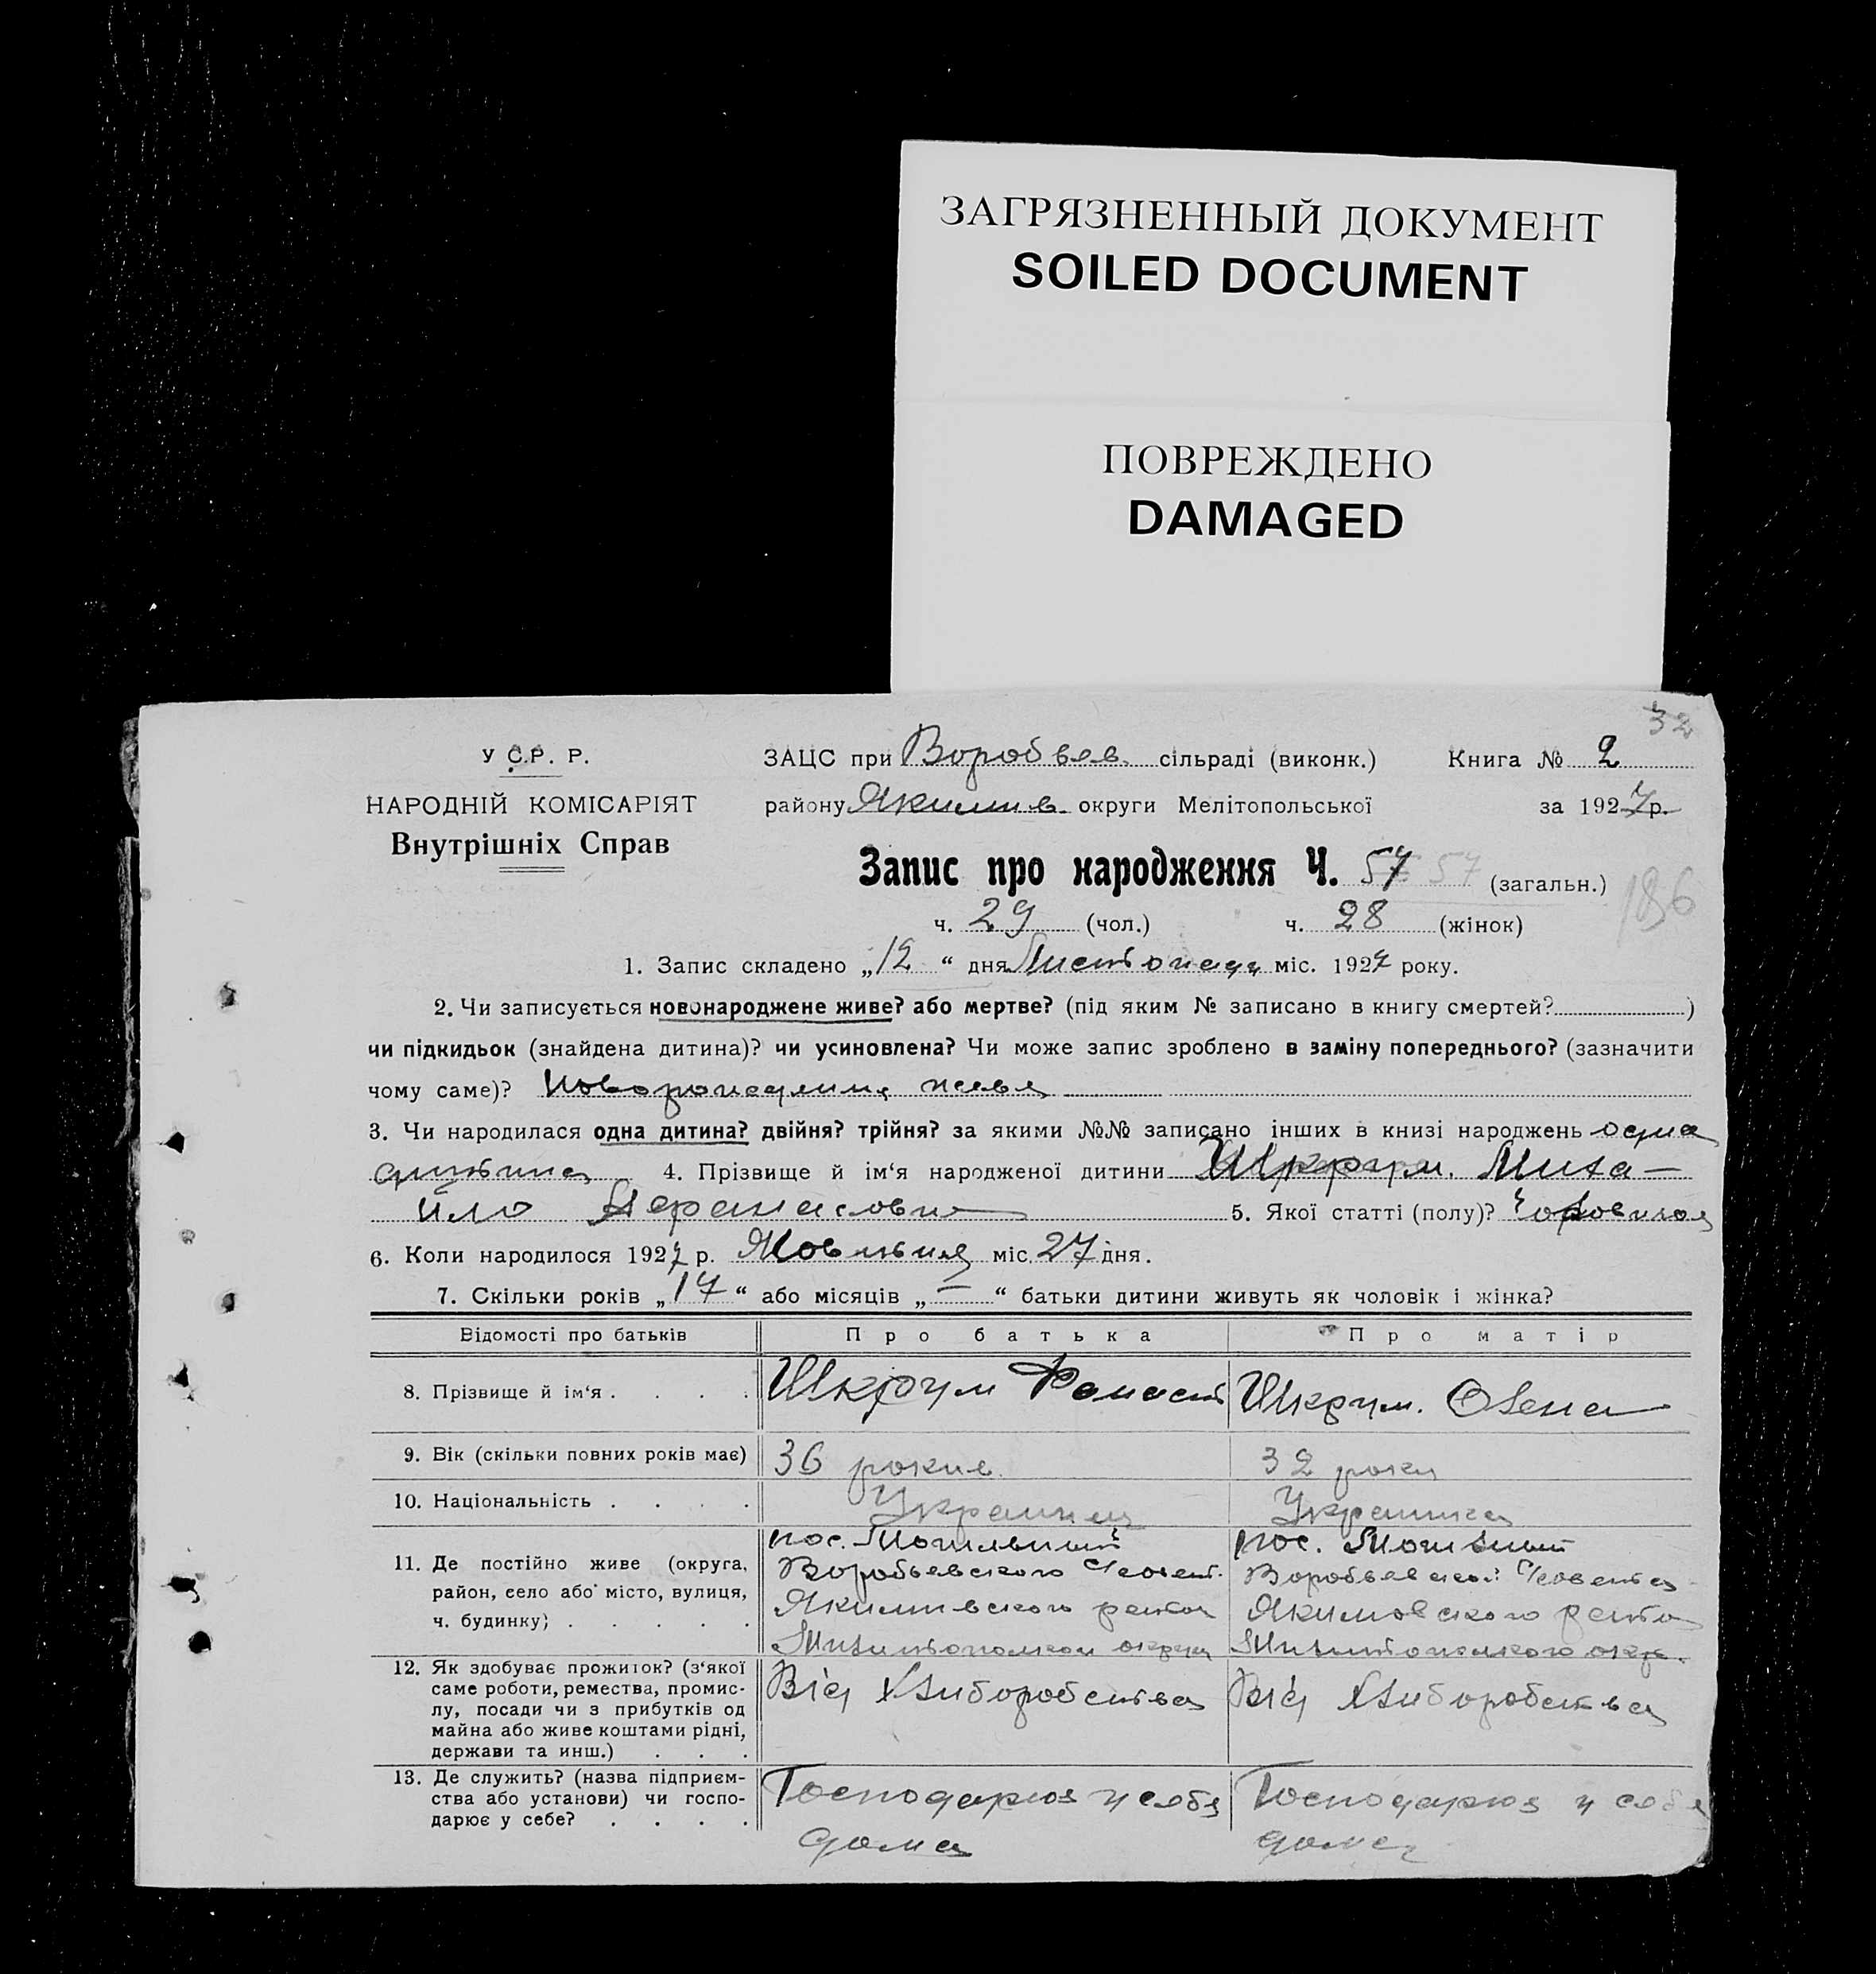 ЗАГРЯЗНЕННЫЙ ДОКУМЕНТ
SOILED DOCUMENT
ПОВРЕЖДЕНО
DAMAGED
32
У С.Р. Р.
НАРОДНІЙ КОМІСАРІЯТ
Внутрішніх Справ
ЗАЦС при Воробьев. сільраді (виконк.) Книга № 2
району Якимив. округи Мелітопольської за 1927 р.
Запис про народження Ч. 57 57 (загальн.)
186
ч. 29 (чол.) ч. 28 (жінок)
1. Запис складено „12“ дня Листопада міс. 1927 року.
2. Чи записується новонароджене живе? або мертве? (під яким № записано в книгу смертей? )
чи підкидьок (знайдена дитина)? чи усиновлена? Чи може запис зроблено в заміну попереднього? (зазначити
чому саме)?
3. Чи народилася одна дитина? двійня? трійня? за якими №№ записано інших в книзі народжень одна
дитина 4. Прізвище й ім‘я народженої дитини Шкрум. Миха-
йло 5. Якої статті (полу)?
6. Коли народилося 1927 р. Жовтня міс. 27 дня.
7. Скільки років „17“ або місяців „—“ батьки дитини живуть як чоловік і жінка?
Відомості про батьків Про батька Про матір
8. Прізвище й ім‘я . . . . Шкрум Фанаст Шкрум. Олена
9. Вік (скільки повних років має) 36 рокив. 32 роки
10. Національність . . . . Украинец Украинка
11. Де постійно живе (округа, район, село або місто, вулиця, ч. будинку) . . . . .
пос.
Воробьевского
Якимивского района
округи
пос.
Якимовского
12. Як здобуває прожиток? (з‘якої саме роботи, ремества, промислу, посади чи з прибутків од майна або живе коштами рідні, держави та инш.) . . .
Від хлиборобства Від хлиборобства
13. Де служить? (назва підприємства або установи) чи господарює у себе? . . . .
Господарюя у себя Господарюя у себя
дома дома